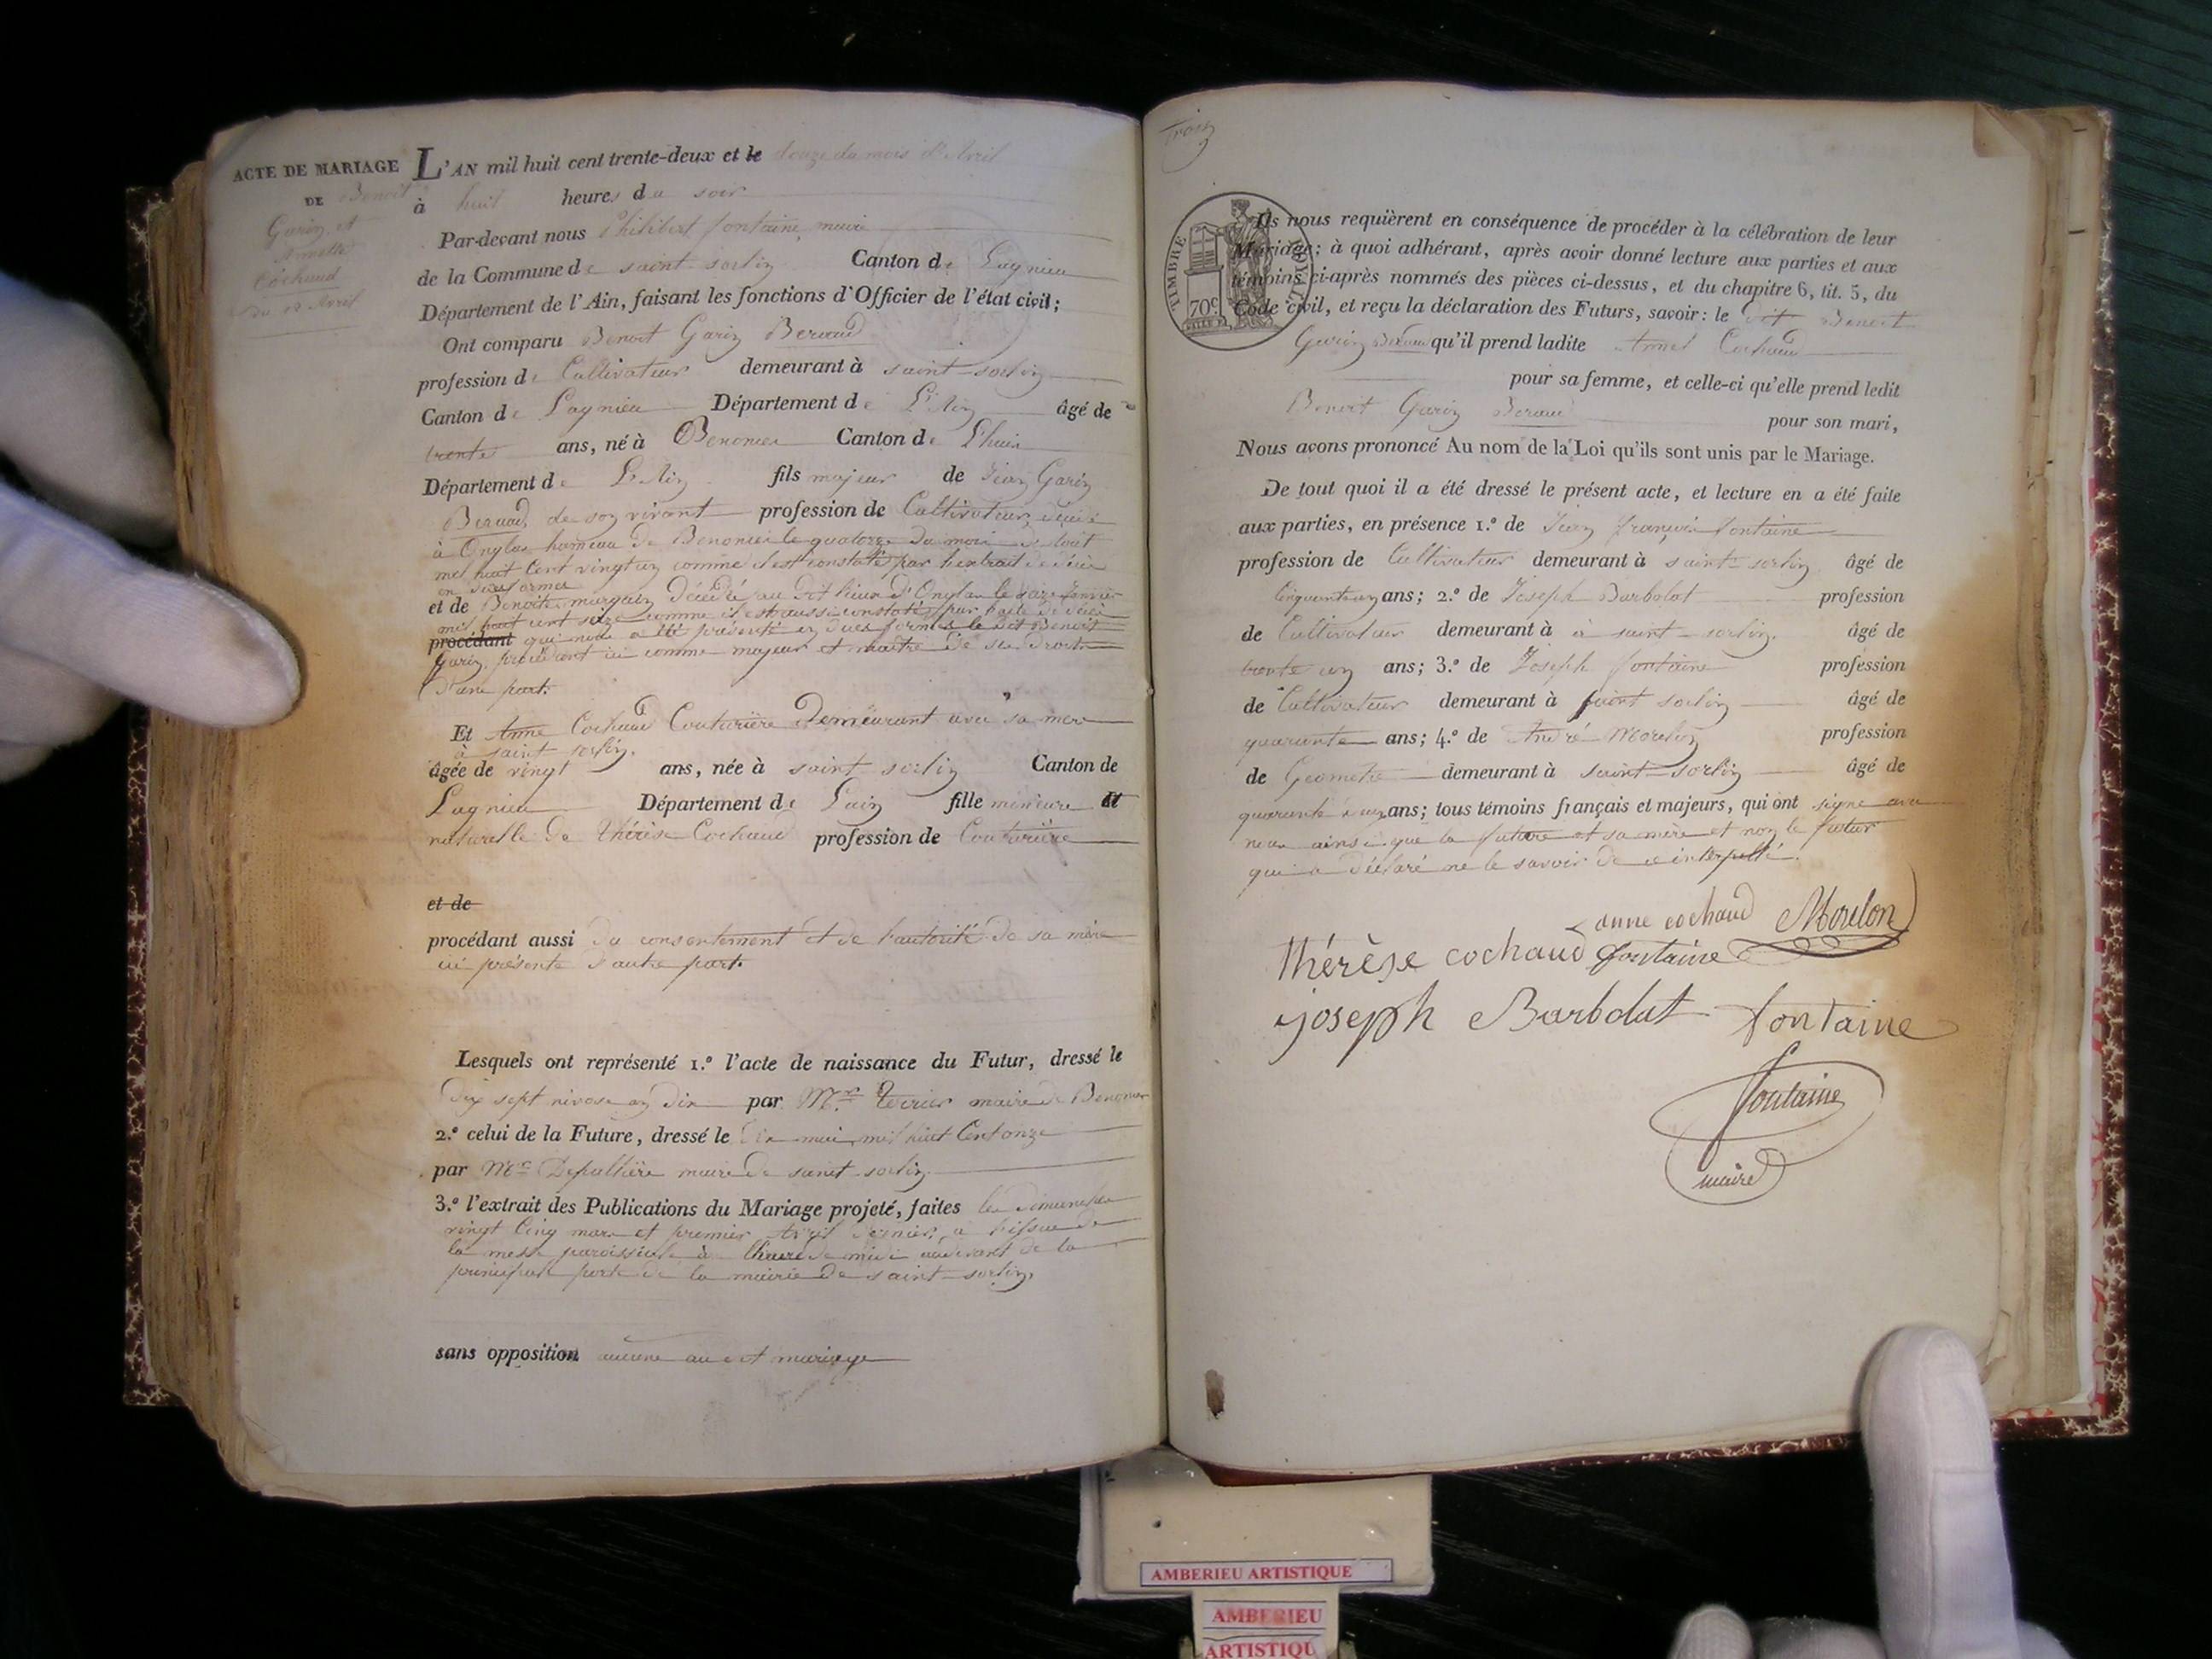 ACTE DE MARIAGE
DE Benoit
Garin et
Annette
Cochaud
du 12 Avril
L'AN mil huit cent trente-deux et le douze du mois d'Avril
à huit heures du soir
Par-devant nous Philibert fontaine, maire
de la Commune de saint-sorlin Canton de Lagnieu
Département de l'Ain, faisant les fonctions d'Officier de l'état civil;
Ont comparu Benoit Garin Beraud
profession de Cultivateur demeurant à saint-sorlin
Canton de Lagnieu Département de L'Ain âgé de
trente ans, né à Benonces Canton de L'huis
Département de L'Ain fils majeur de Jean Garin
Beraud, de son vivant profession de Cultivateur, décédé
à Onglas hameau de Benonces le quatorze du mois d'aout
mil huit Cent vingt un comme il est constaté par l'extrait de décès
en dues formes
et de Benoite murgain Décédée au dit lieux d'Onglas le seize Janvier
mil huit cent seize comme il est aussi constaté par l'acte de décès
procédant qui nous a été présenté en dues formes le dit Benoit
Garin, procédant ici comme majeur et maître de ses droits
d'une part.
Et Anne Cochaud Couturière Demeurant avec sa mère
à saint-sorlin.
âgée de vingt ans, née à saint-sorlin Canton de
Lagnieu Département de L'ain fille mineure et
naturelle de Thérèse Cochaud profession de Couturière
et de
procédant aussi du consentement et de l'autorité de sa mère
ici présente d'autre part.
Lesquels ont représenté 1.º l'acte de naissance du Futur, dressé le
Dix sept nivose an dix par Mr. maire de Benonces
2.º celui de la Future, dressé le Dix mai mil huit Cent onze
par Mr. maire de saint-sorlin
3.º l'extrait des Publications du Mariage projeté, faites les dimanches
vingt Cinq mars et premier Avril dernier, à l'issue de
la messe paroissiale à l'heure de midi audevant de la
principale porte de la mairie de saint-sorlin,
sans opposition aucune au dit mariage
TIMBRE ROYAL
70 c.
Ils nous requièrent en conséquence de procéder à la célébration de leur
Mariage; à quoi adhérant, après avoir donné lecture aux parties et aux
témoins ci-après nommés des pièces ci-dessus, et du chapitre 6, tit. 5, du
Code civil, et reçu la déclaration des Futurs, savoir: le dit Benoit
Garin Beraud qu'il prend ladite Anne Cochaud
pour sa femme, et celle-ci qu'elle prend ledit
Benoit Garin Beraud pour son mari,
Nous avons prononcé Au nom de la Loi qu'ils sont unis par le Mariage.
De tout quoi il a été dressé le présent acte, et lecture en a été faite
aux parties, en présence 1.º de Jean françois fontaine
profession de Cultivateur demeurant à saint-sorlin âgé de
Cinquante un ans; 2.º de Joseph Barbolat profession
de Cultivateur demeurant à à saint-sorlin. âgé de
trente un ans; 3.º de Joseph fontaine profession
de Cultivateur demeurant à saint sorlin âgé de
quarante ans; 4.º de André Moulon profession
de Geometre demeurant à saint-sorlin âgé de
quarante ans; tous témoins français et majeurs, qui ont signé avec
nous ainsi que la future et sa mère et non le futur
qui a déclaré ne le savoir de ce interpellé.
anne cochaud Moulon
Thérèse cochaud fontaine
joseph Barbolat fontaine
fontaine
maire
AMBERIEU ARTISTIQUE
AMBERIEU
ARTISTIQU